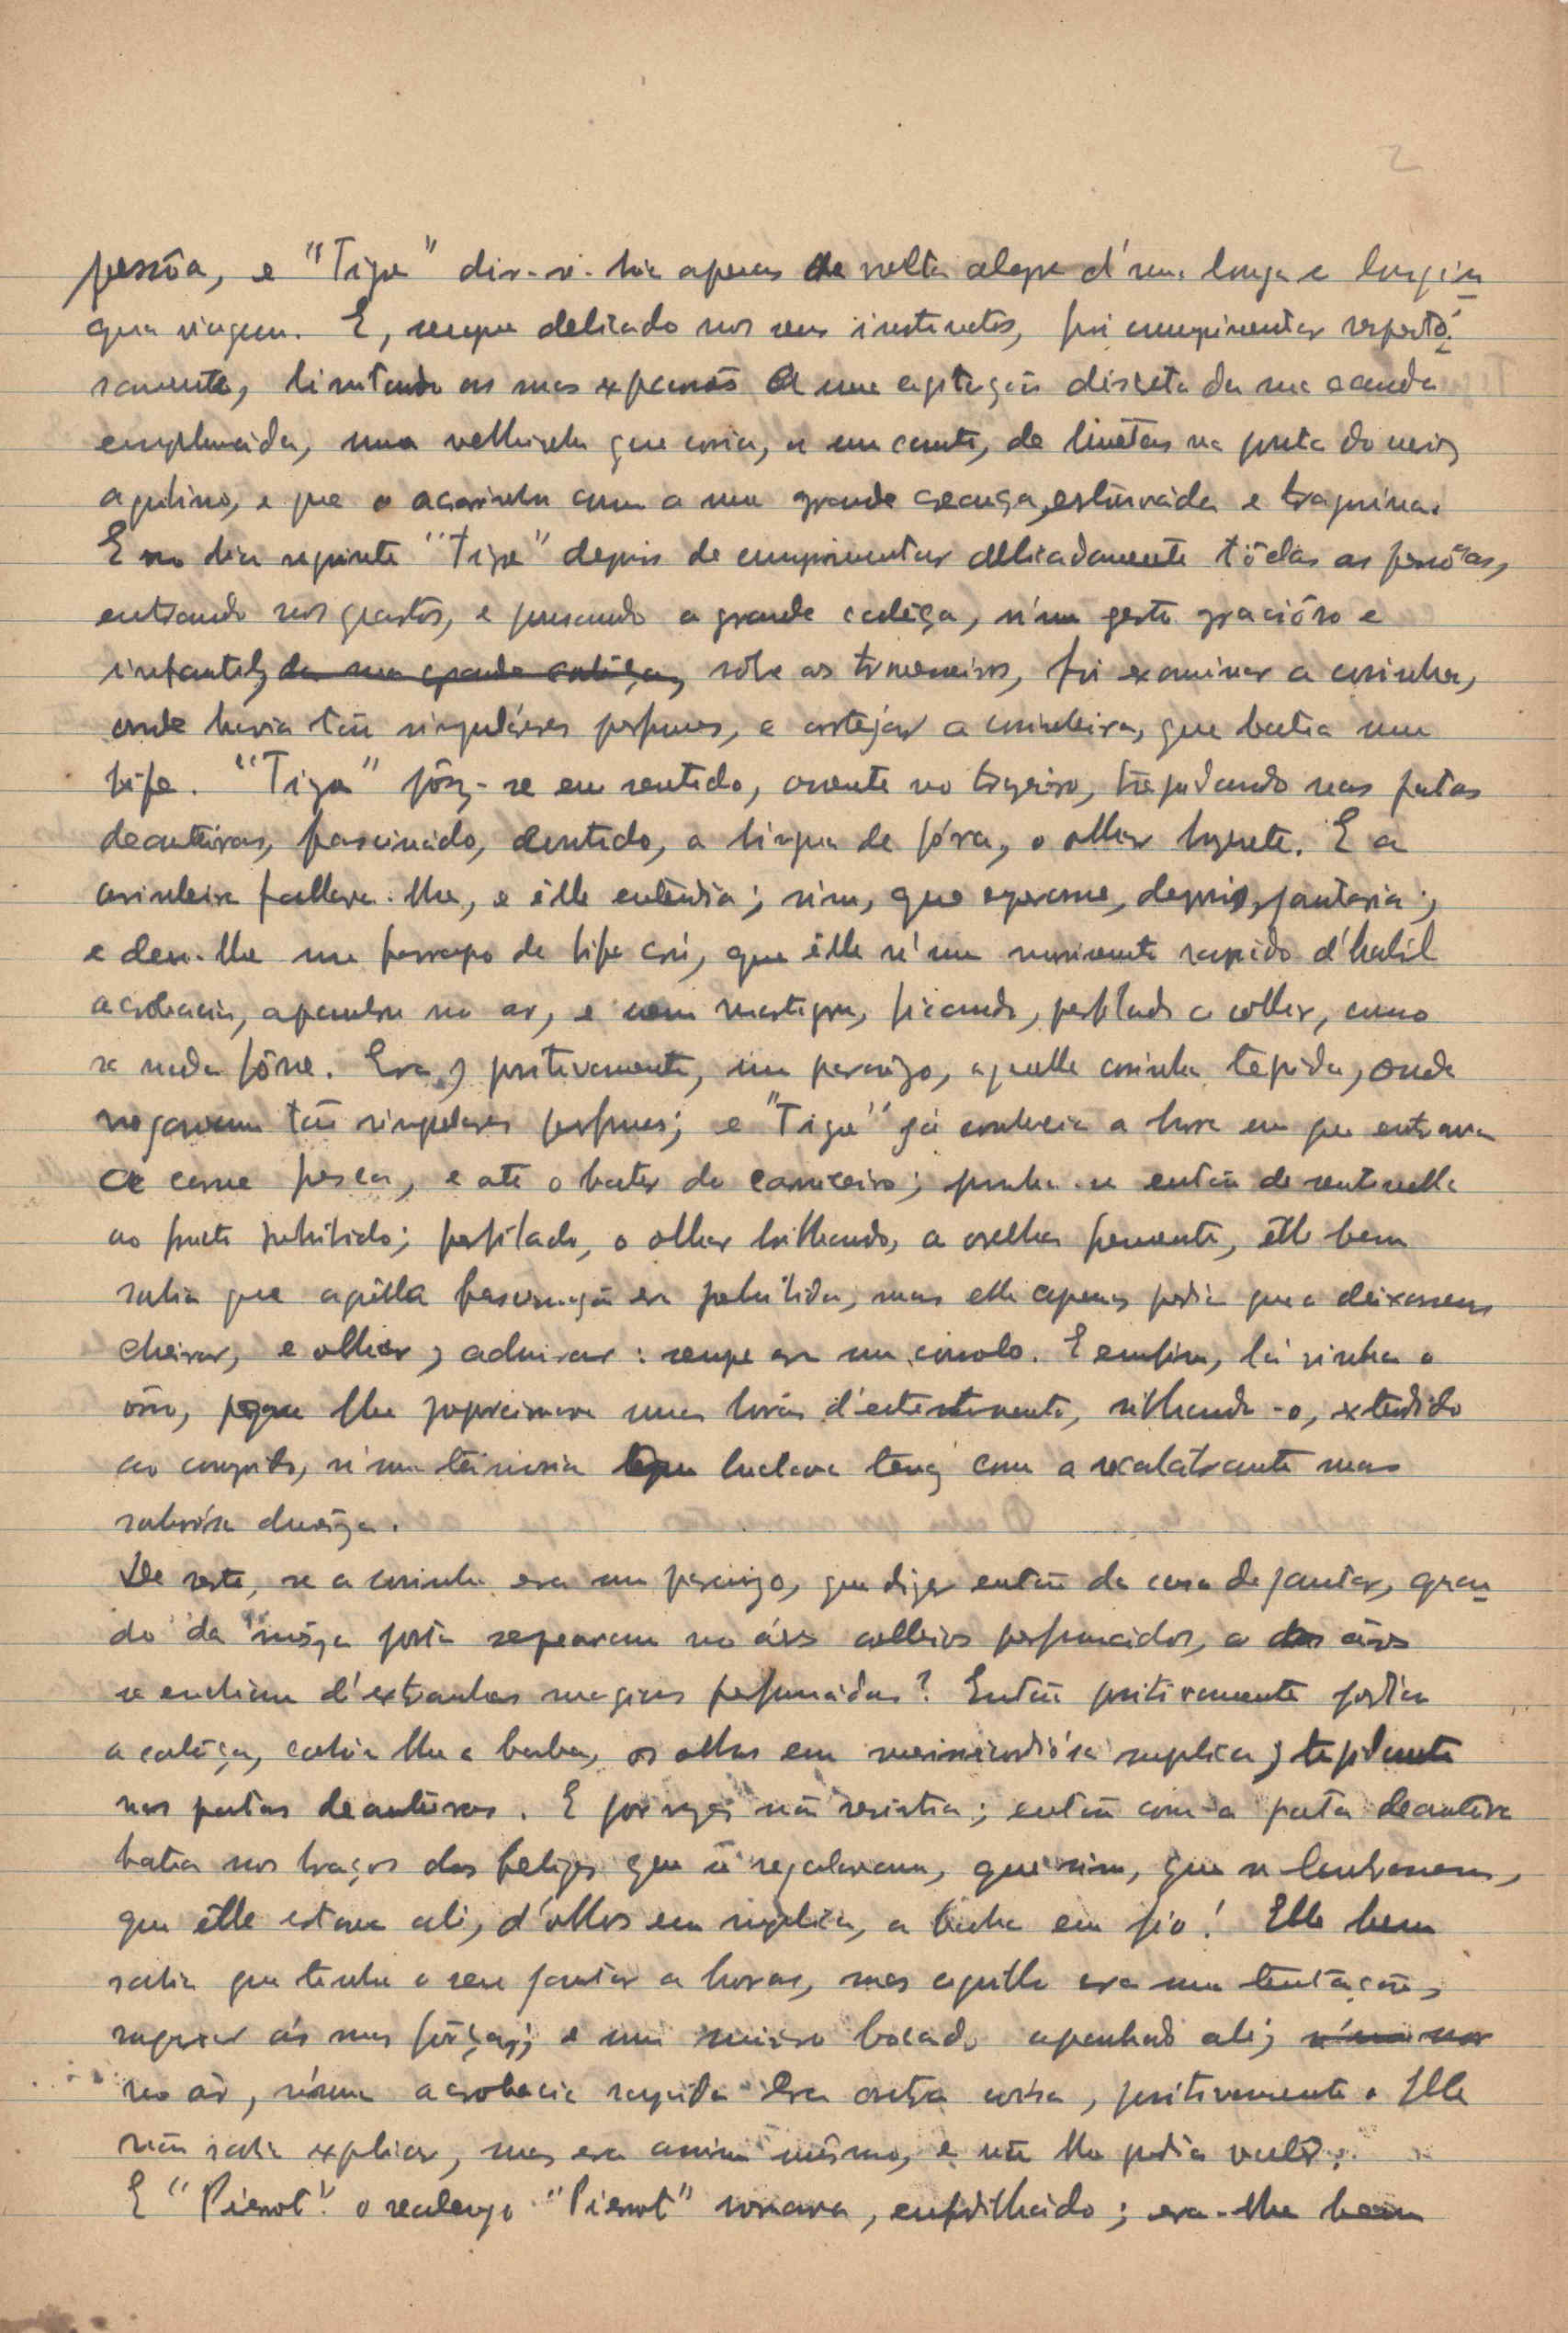 2
pessôa, e "Tigre" dir-se-hia apenas de volta alegre d'uma longa e longin
qua viagem. E, sempre delicado nos seus instinctos, foi cumprimentar respeitó
samente, limitando as suas expansões a uma agitação discreta da sua cauda
emplumada, uma velhinha que cosia, a um canto, de lunetas na ponta do nariz
aquilino, e que o acarinhou como a uma grande creança, estouvada e traquina.
E no dia seguinte "Tigre" depois de cumprimentar delicadamente tôdas as pessôas,
entrando nos quartos, e pousando a grande cabêça, n'um gesto gracióso e
infantil, da sua grande cabêça, sobre os travesseiros, foi examinar a cosinha,
onde havia tão singuláres perfumes, e cortejar a cosinheira, que batia um
bife. "Tigre" pôz-se em sentido, assente no trazeiro, trepidando nas patas
deanteiras, fascinado, a lingua de fóra, o olhar luzente. E a
cosinheira fallava-lhe, e êlle entendia; sim, que esperasse, depois, jantaria;
e deu-lhe um farrapo de bife crú, que êlle n'um movimento rapido d'habil
acrobacia, apanhou no ar, e nem mastigou, ficando, perfilado a olhar, como
se nada fôsse. Era, positivamente, um paraizo, aquella cosinha tepida, onde
vogavam tão singulares perfumes; e "Tigre" já conhecia a hora em que entrava
a carne fresca, e até o bater do carniceiro; punha-se então de sentinella
ao fructo prohibido; perfilado, o olhar brilhando, a orelha fremente, êlle bem
sabia que aquella fascinação era prohibida, mas elle apenas pedia que o deixassem
cheirar, e olhar, admirar: sempre era um consolo. E emfim, lá vinha o
ôsso, que lhe proporcionava umas horas d'entretimento, rilhando-o, extendido
ao comprido, n'uma teimosia que luctava tenaz com a recalcitrante mas
saborósa durêza.
De resto, se a cosinha era um paraizo, que dizer então da casa de jantar, quan
do da mêsa posta se evolavam no ár perfumados, e os áres
se enchiam d'extranhas magias perfumadas? Então positivamente perdia
a cabêça, cahia-lhe a baba, os olhos em misericordiósa suplica, trepidante
nas patas deanteiras. E por vezes não resistia; então com a pata deanteira
batia nos braços dos felizes que se regalavam, que sim, que se lembrassem,
que êlle estava ali, d'olhos em suplica, a baba em fio! Elle bem
sabia que tinha o seu jantar a horas, mas aquillo era uma tentação,
superior ás suas fôrças; e um bocado apanhado ali,
no ár, n'uma acrobacia rapida era outra coisa, positivamente. Elle
não sabia explicar, mas era assim mêsmo, e não lho podia valer.
E "Pierrot" o realengo "Pierrot" rosnava, enfrilhado; era-lhe bem